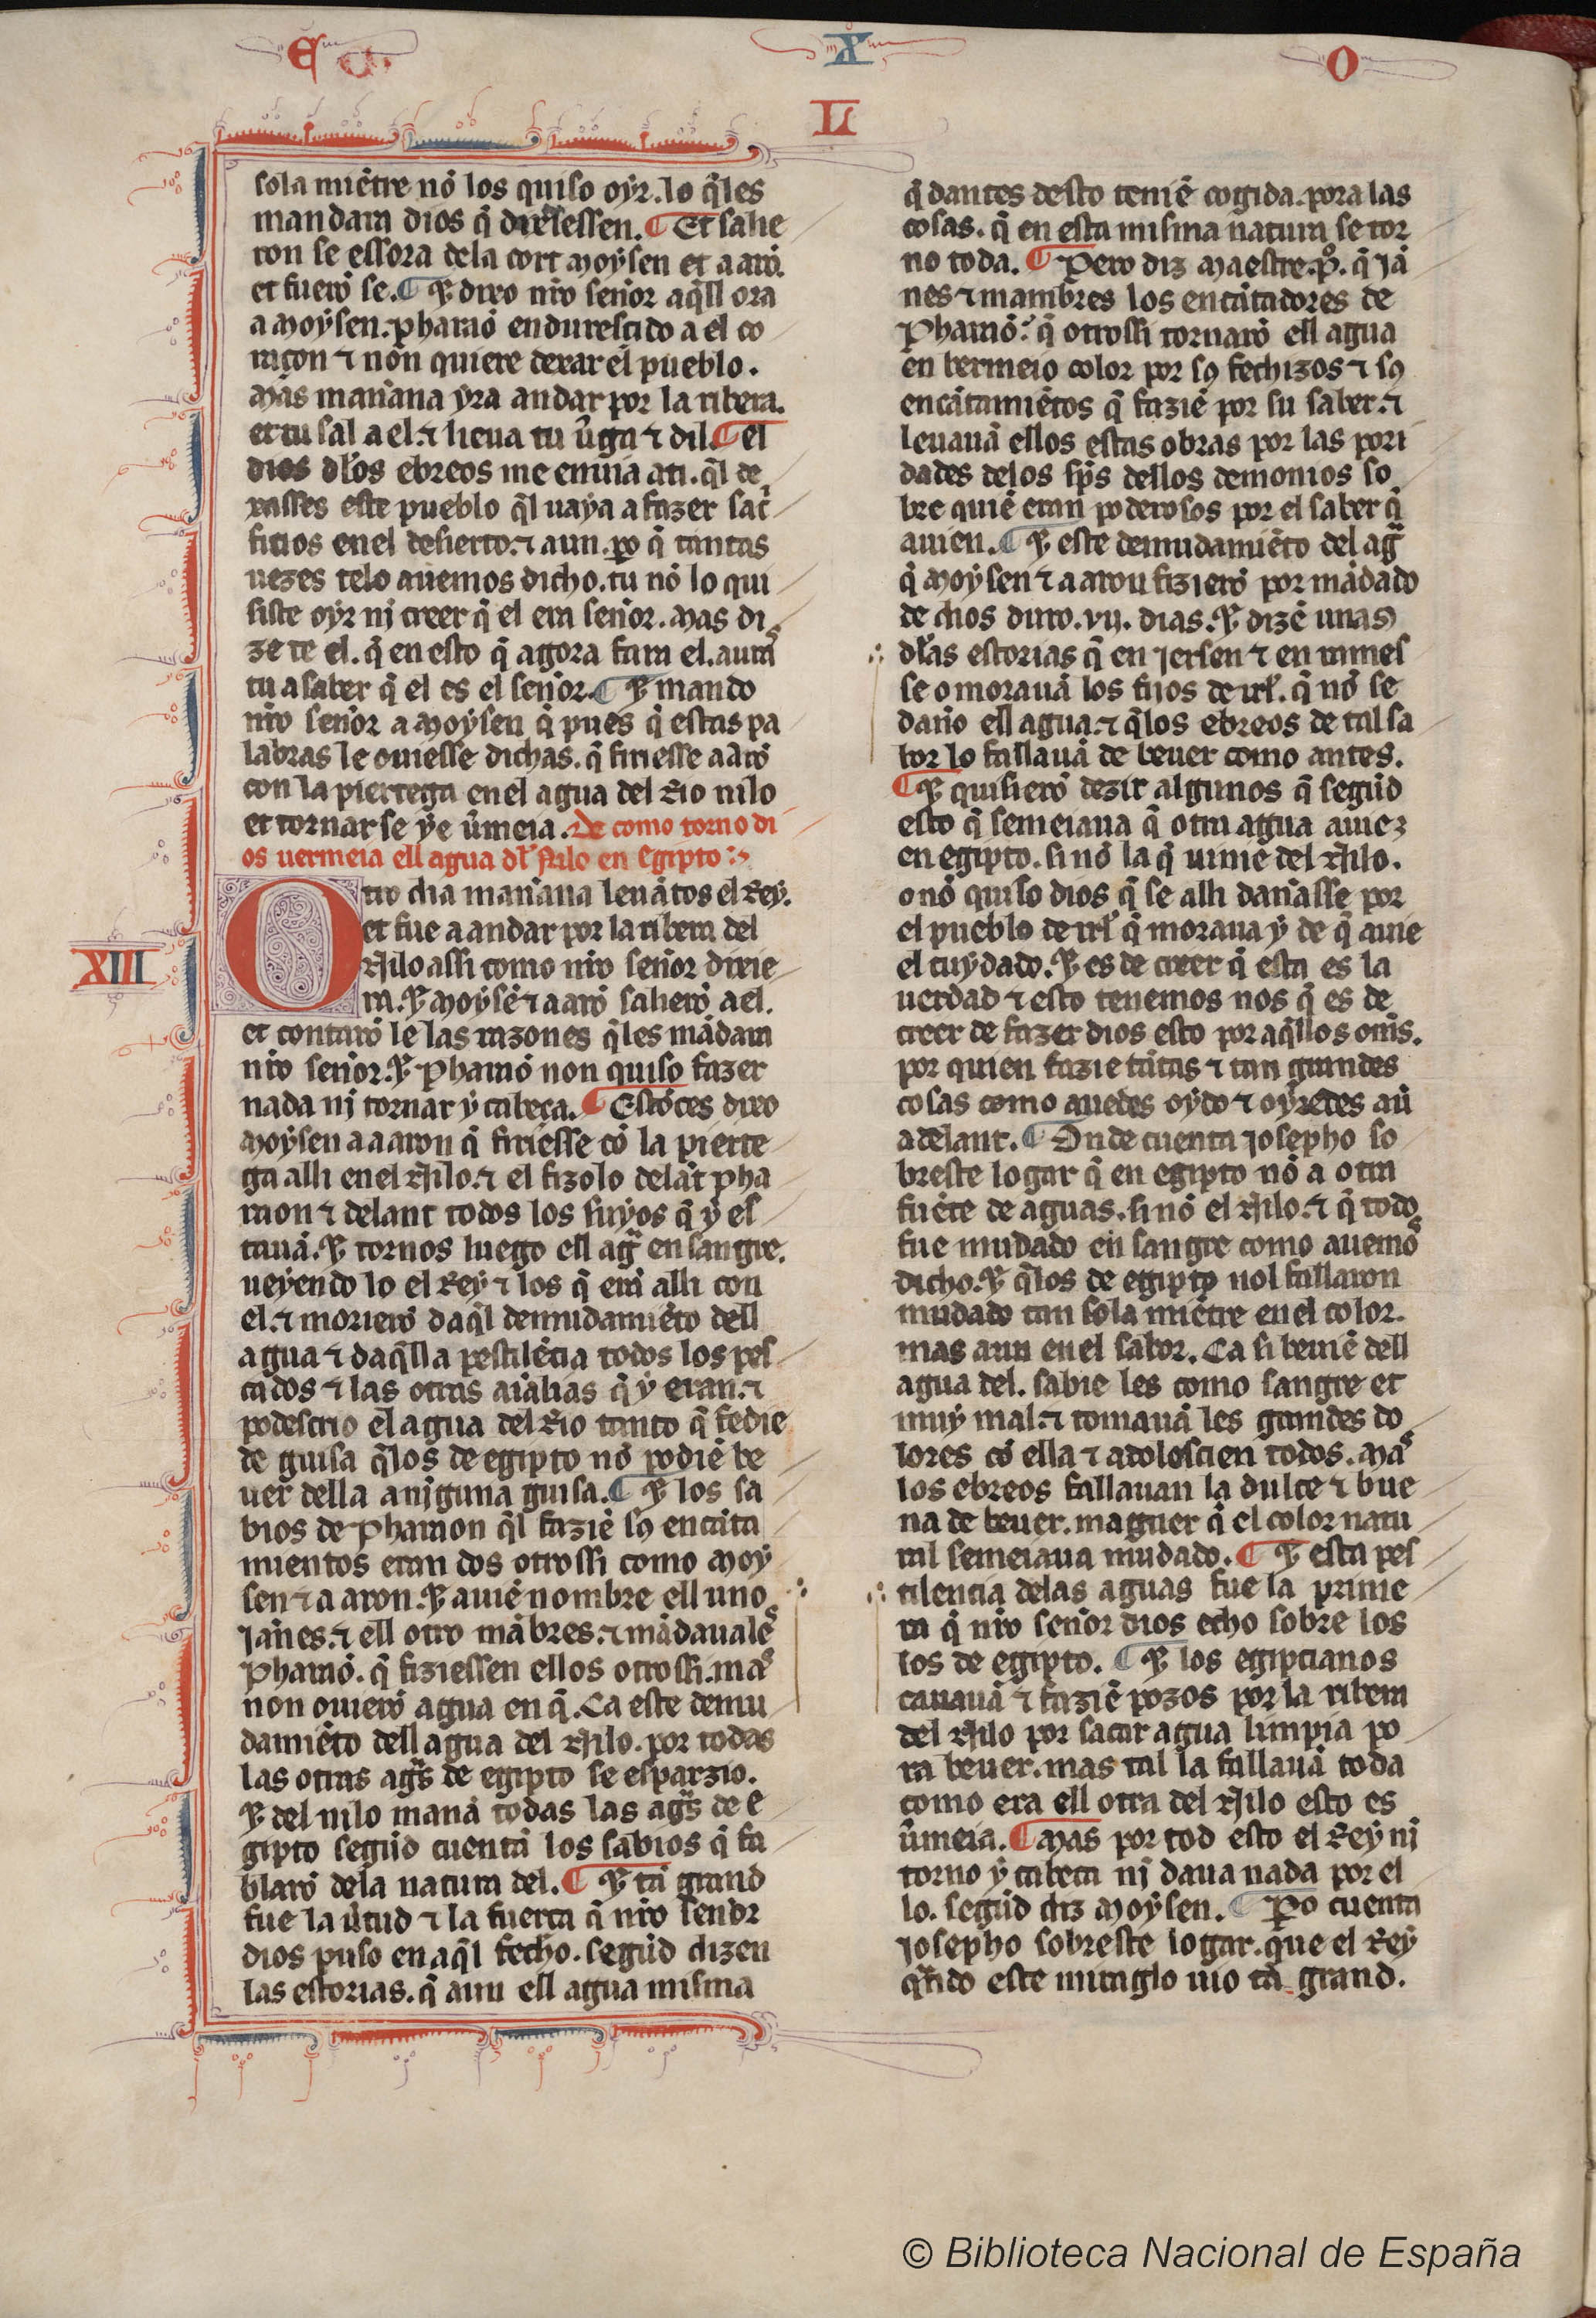 E X O
L
sola miẽtre nõ los quiso oyr. lo q̃les
mandara dios q̃ dixiessen. ¶ Et salie
ron se essora dela cort moysen et aarõ.
et fuerõ se. ¶ ⁊ dixo nr̃o sen̄or aq̃ll ora
a moysen. pharaõ endurescido a el co
raçon ⁊ non quiere dexar el pueblo.
Mas man̄ana yra andar por la ribera.
et tu sal a el. ⁊ lieua tu ũga ⁊ dil. ¶ el
dios dlos ebreos me enuia a ti. q̃l de
xasses este pueblo q̃l uaya a fazer sacri
ficios enel desierto. ⁊ aun. po q̃ tantas
uezes telo auemos dicho. tu nõ lo qui
siste oyr nj creer q̃ el era sen̄or. Mas di
ze te el. q̃ en esto q̃ agora fara el. auras
tu a saber q̃ el es el sen̄or. ¶ ⁊ mando
nr̃o sen̄or a moysen q̃ pues q̃ estas pa
labras le ouiesse dichas. q̃ firiesse aarõ
con la piertega enel agua del Rio nilo
et tornar se ye ũmeia. De como torno di
os uermeia ell agua dl Nilo en Egipto
XIII
Otro dia man̄ana leuãtos el Rey.
et fue a andar por la ribera del
Nilo assi como nr̃o sen̄or dixie
ra. ⁊ moysẽ ⁊ aarõ salierõ a el.
et contarõ le las razones q̃les mãdara
nr̃o sen̄or. ⁊ Pharaõ non quiso fazer
nada nj tornar y cabeça. ¶ Estõces dixo
moysen a aaron q̃ firiesse cõ la pierte
ga alli enel Nilo. ⁊ el fizolo delãt pha
raon ⁊ delant todos los suyos q̃ y es
tauã. ⁊ tornos luego ell agᵃ en sangre.
ueyendo lo el Rey ⁊ los q̃ erã alli con
el. ⁊ morierõ daq̃l demudamiẽto dell
agua ⁊ daq̃lla pestilẽcia todos los pes
cados ⁊ las otras aĩalias q̃ y eran. ⁊
podescio el agua del Rio tanto q̃ fedie
de guisa q̃los de egipto nõ podiẽ be
uer della a njguna guisa. ¶ ⁊ los sa
bios de Pharaon q̃l faziẽ sꝯ encãta
mientos eran dos otrossi como moy
sen ⁊ aaron. ⁊ auiẽ nombre ell uno
Janes. ⁊ ell otro mãbres. ⁊ mãdauales
Pharaõ. q̃ fiziessen ellos otrossi. mas
non ouierõ agua en q̃. Ca este demu
damiẽto dell agua del Nilo. por todas
las otras agᵃs de egipto se esparzio.
⁊ del nilo manã todas las agᵃs de e
gipto segũd cuentã los sabios q̃ fa
blarõ dela natura del. ¶ ⁊ tã grand
fue la ũtud ⁊ la fuerça q̃ nr̃o sen̄or
dios puso en aq̃l fecho. segũd dizen
las estorias. q̃ aun ell agua misma
q̃ dantes desto teniẽ cogida. pora las
cosas. q̃ en esta misma natura se tor
no toda. ¶ Pero diz Maestre. pº. q̃ Jã
nes ⁊ mambres los encãtadores de
Pharaõ. q̃ otrossi tornarõ ell agua
en bermeio color por sꝯ fechizos ⁊ sꝯ
encãtamiẽtos q̃ faziẽ por su saber. ⁊
leuauã ellos estas obras por las pori
dades delos sp̃s dellos demonios so
bre quiẽ eran poderosos por el saber q̃
auien. ¶ ⁊ este demudamiẽto del agᵃ
q̃ moysen ⁊ aaron fizierõ por mãdado
de dios duro. vij. dias. ⁊ dizẽ unas
dlas estorias q̃ en Jersen ⁊ en ramel
se o morauã los fijos de irl̃. q̃ nõ se
dan̄o ell agua. ⁊ q̃los ebreos de tal sa
bor lo fallauã de beuer como antes.
¶ ⁊ quisierõ dezir algunos q̃ segũd
esto q̃ semeiaua q̃ otra agua auie
en egipto. si nõ la q̃ uinie del Nilo.
o nõ quiso dios q̃ se alli dan̄asse por
el pueblo de irl̃ q̃ moraua y de q̃ auie
el cuydado. ⁊ es de creer q̃ esta es la
uerdad ⁊ esto tenemos nos q̃ es de
creer de fazer dios esto por aq̃llos om̃s.
por quien fazie tãtas ⁊ tan grandes
cosas como auedes oydo ⁊ oyredes aũ
adelant. ¶ Onde cuenta Josepho so
breste logar q̃ en egipto nõ a otra
fuẽte de aguas. si nõ el Nilo. ⁊ q̃ todo
fue mudado en sangre como auemos
dicho. ⁊ q̃los de egipto nol fallaron
mudado tan sola miẽtre enel color.
mas aun enel sabor. Ca si beuiẽ dell
agua del. sabie les como sangre et
muy mal. ⁊ tomauã les grandes do
lores cõ ella ⁊ adolescien todos. Mas
los ebreos fallauan la dulce ⁊ bue
na de beuer. maguer q̃ el color natu
ral semeiaua mudado. ¶ ⁊ esta pes
tilencia delas aguas fue la prime
ra q̃ nr̃o sen̄or dios echo sobre los
los de egipto. ¶ ⁊ los egipcianos
cauauã ⁊ faziẽ pozos por la ribera
del Nilo por sacar agua limpia po
ra beuer. mas tal la fallauã toda
como era ell otra del Nilo esto es
ũmeia. ¶ Mas por tod esto el Rey nj
torno y cabeça nj daua nada por el
lo. segũd diz moysen. ¶ Po cuenta
Josepho sobreste logar. que el Rey
qᵃndo este miraglo uio tã grand.
© Biblioteca Nacional de España